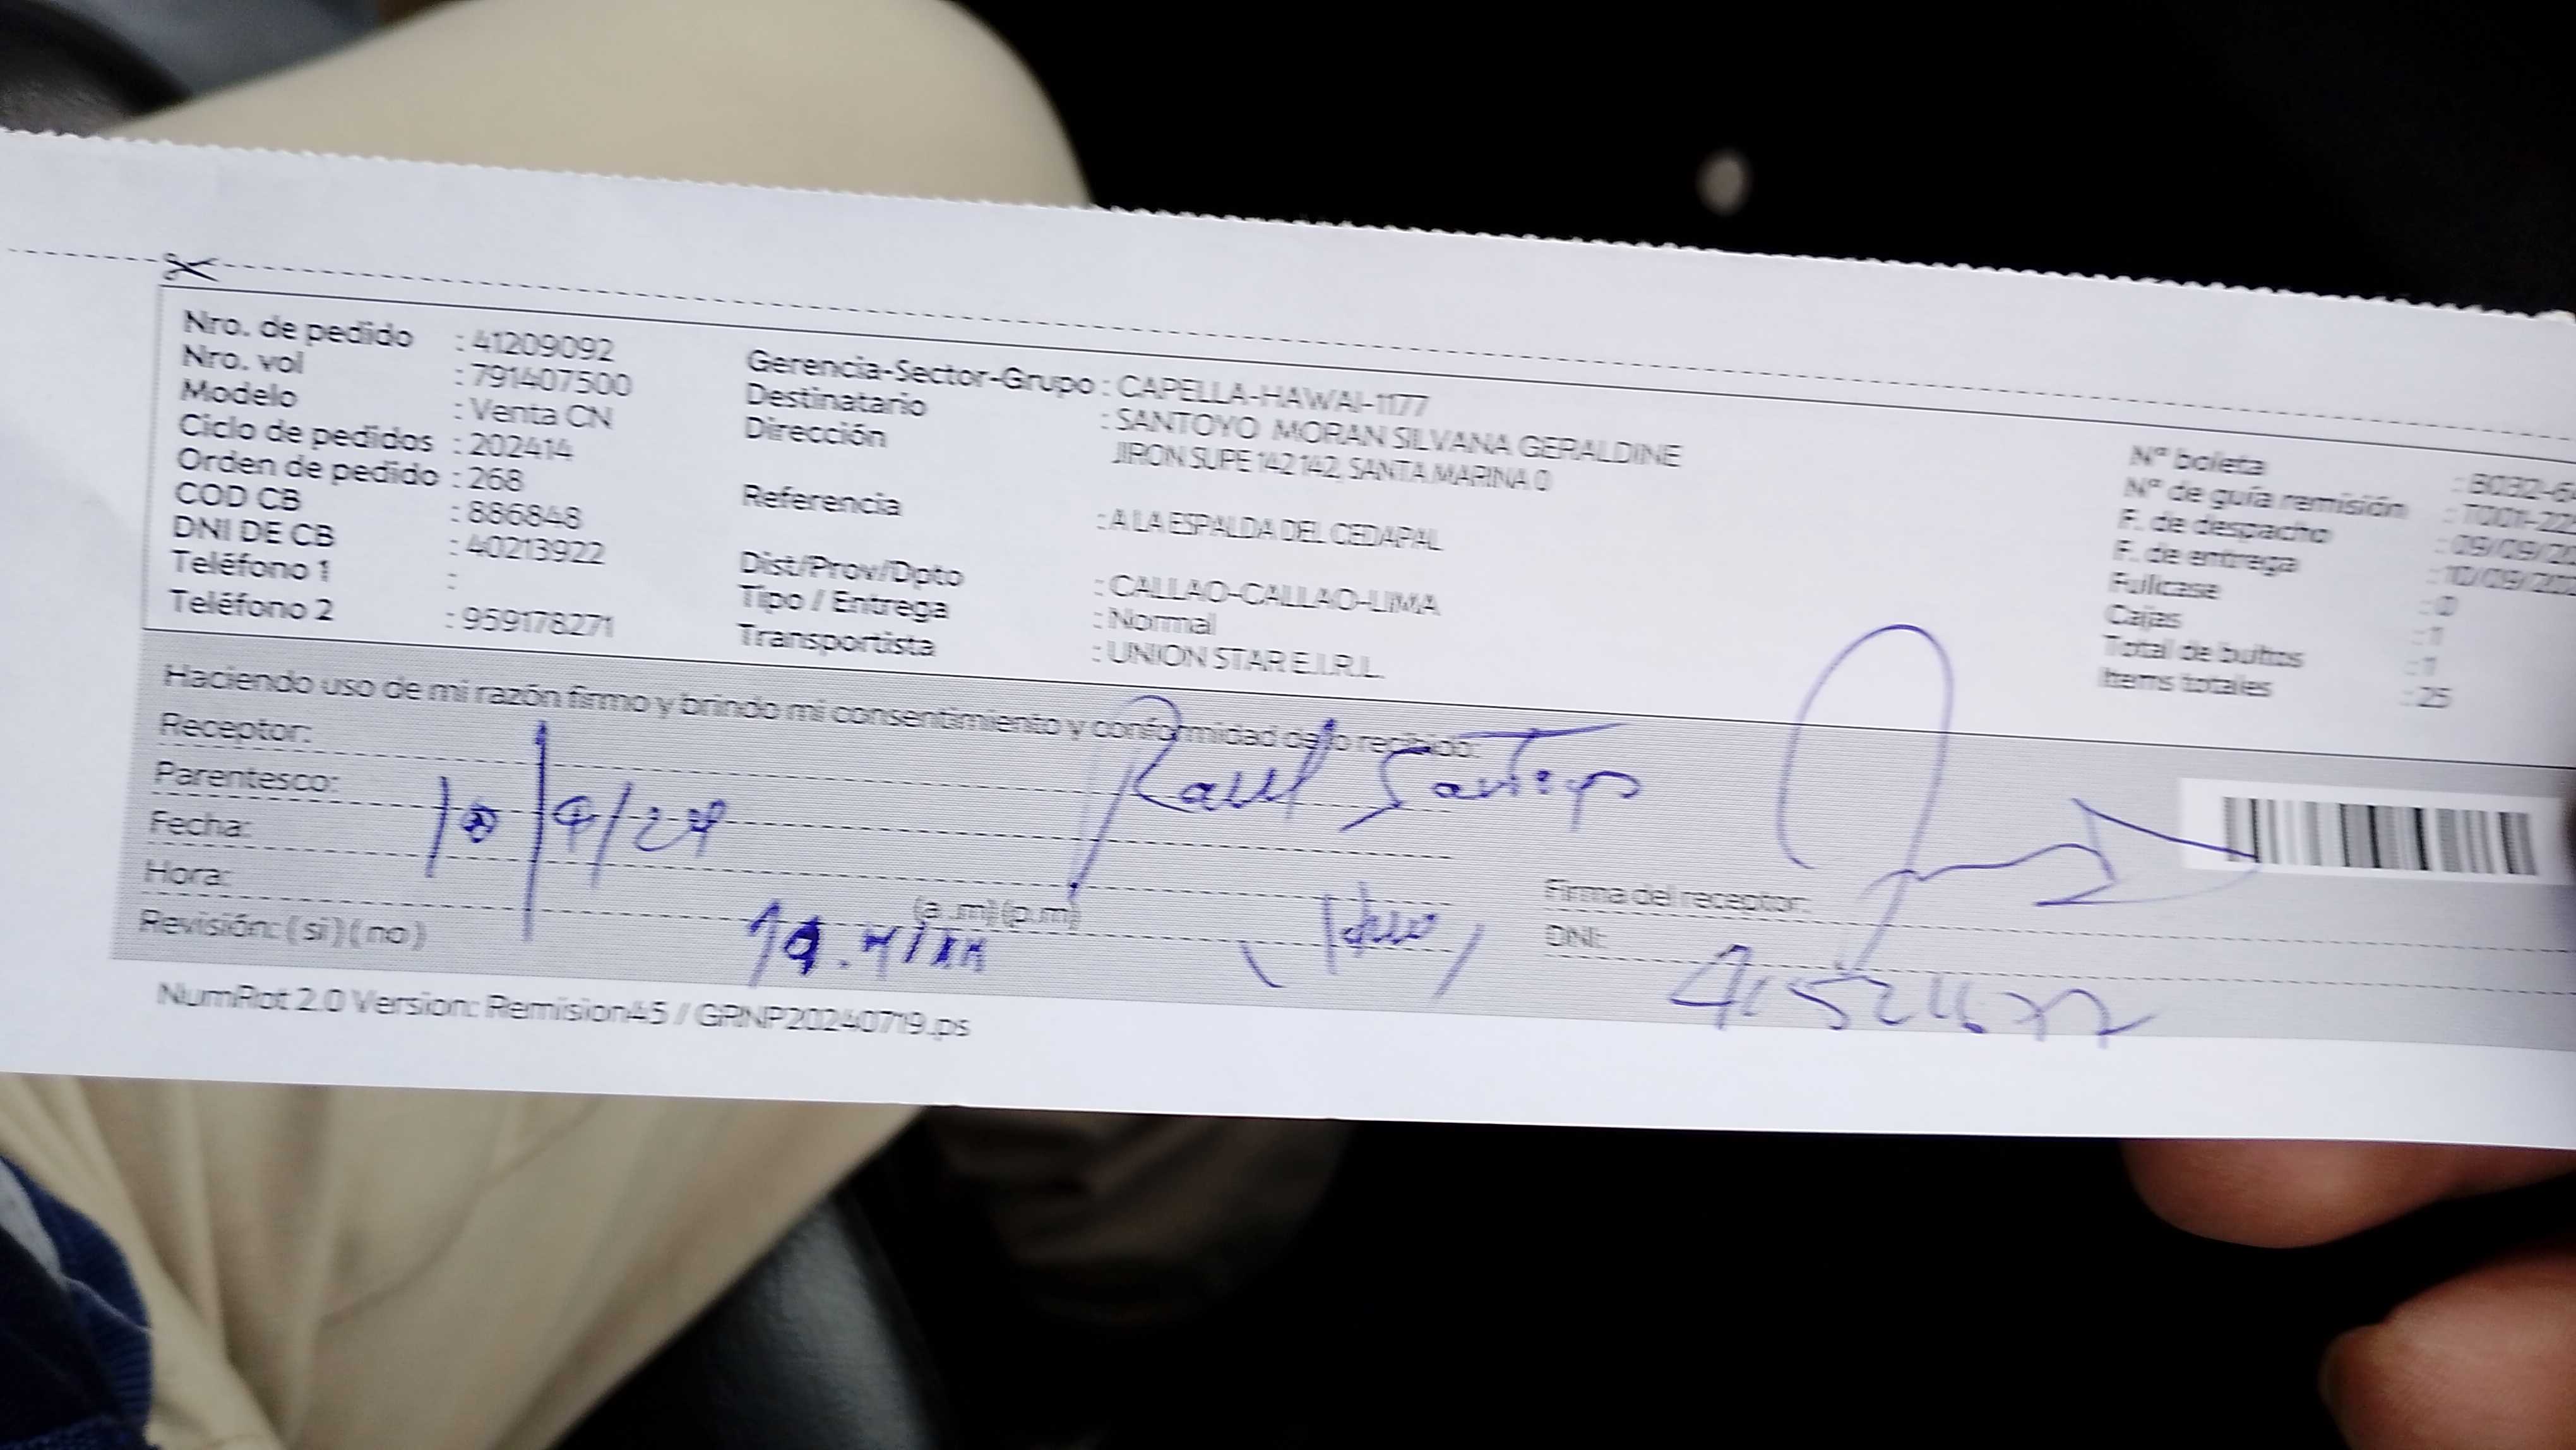 Nro. de pedido : 41209092
Nro. vol : 791407500
Modelo : Venta CN
Ciclo de pedidos : 202414
Orden de pedido : 268
COD CB : 886848
DNI DE CB : 40213922
Teléfono 1 :
Teléfono 2 : 959178271
Gerencia-Sector-Grupo : CAPELLA-HAWAI-1177
Destinatario : SANTOYO MORAN SILVANA GERALDINE
Dirección JIRON SUPE 142 142, SANTA MARINA 0
Referencia : A LA ESPALDA DEL CEDAPAL
Dist/Prov/Dpto : CALLAO-CALLAO-LIMA
Tipo / Entrega : Normal
Transportista : UNION STAR E.I.R.L.
N° boleta : B032-6
N° de guía remisión : T001-22
F. de despacho : 09/09/20
F. de entrega : 10/09/20
Fullcase : 0
Cajas : 1
Total de bultos : 1
Items totales : 25
Haciendo uso de mi razón firmo y brindo mi consentimiento y conformidad de lo recibido:
Receptor: Raul Santoyo
Parentesco:
Fecha: 10/9/24
Hora: (a.m)(p.m)
Revisión: (si)(no)
Firma del receptor:
DNI:
NumRot 2.0 Version: Remision45 / GRNP20240719.ps